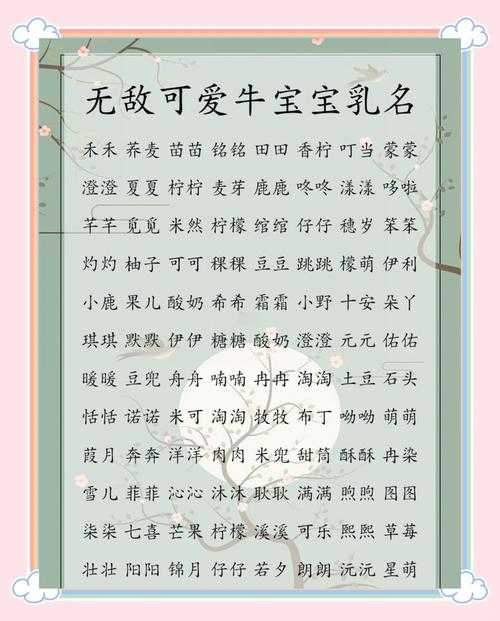 无敌可爱牛宝宝乳名
禾禾 荞麦 苗苗 铭铭 田田 香柠 叮当 蒙蒙
澄澄 夏夏 柠柠 麦芽 鹿鹿 咚咚 漾漾 哆啦
芊芊 觅觅 米然 柠檬 绾绾 仔仔 穗岁 笨笨
灼灼 柚子 可可 稞稞 豆豆 跳跳 檬萌 伊利
小鹿 果儿 酸奶 希希 霜霜 小野 十安 朵丫
琪琪 默默 伊伊 糖糖 酸奶 澄澄 元元 佑佑
暖暖 豆兜 舟舟 喃喃 冉冉 淘淘 土豆 石头
恬恬 诺诺 米可 淘淘 牧牧 布丁 呦呦 萌萌
葭月 奔奔 洋洋 肉肉 米兜 甜筒 酥酥 冉染
雪儿 菲菲 沁沁 沐沐 耿耿 满满 煦煦 图图
柒柒 七喜 芒果 柠檬 溪溪 可乐 熙熙 草莓
壮壮 阳阳 锦月 仔仔 若夕 朗朗 沅沅 星萌